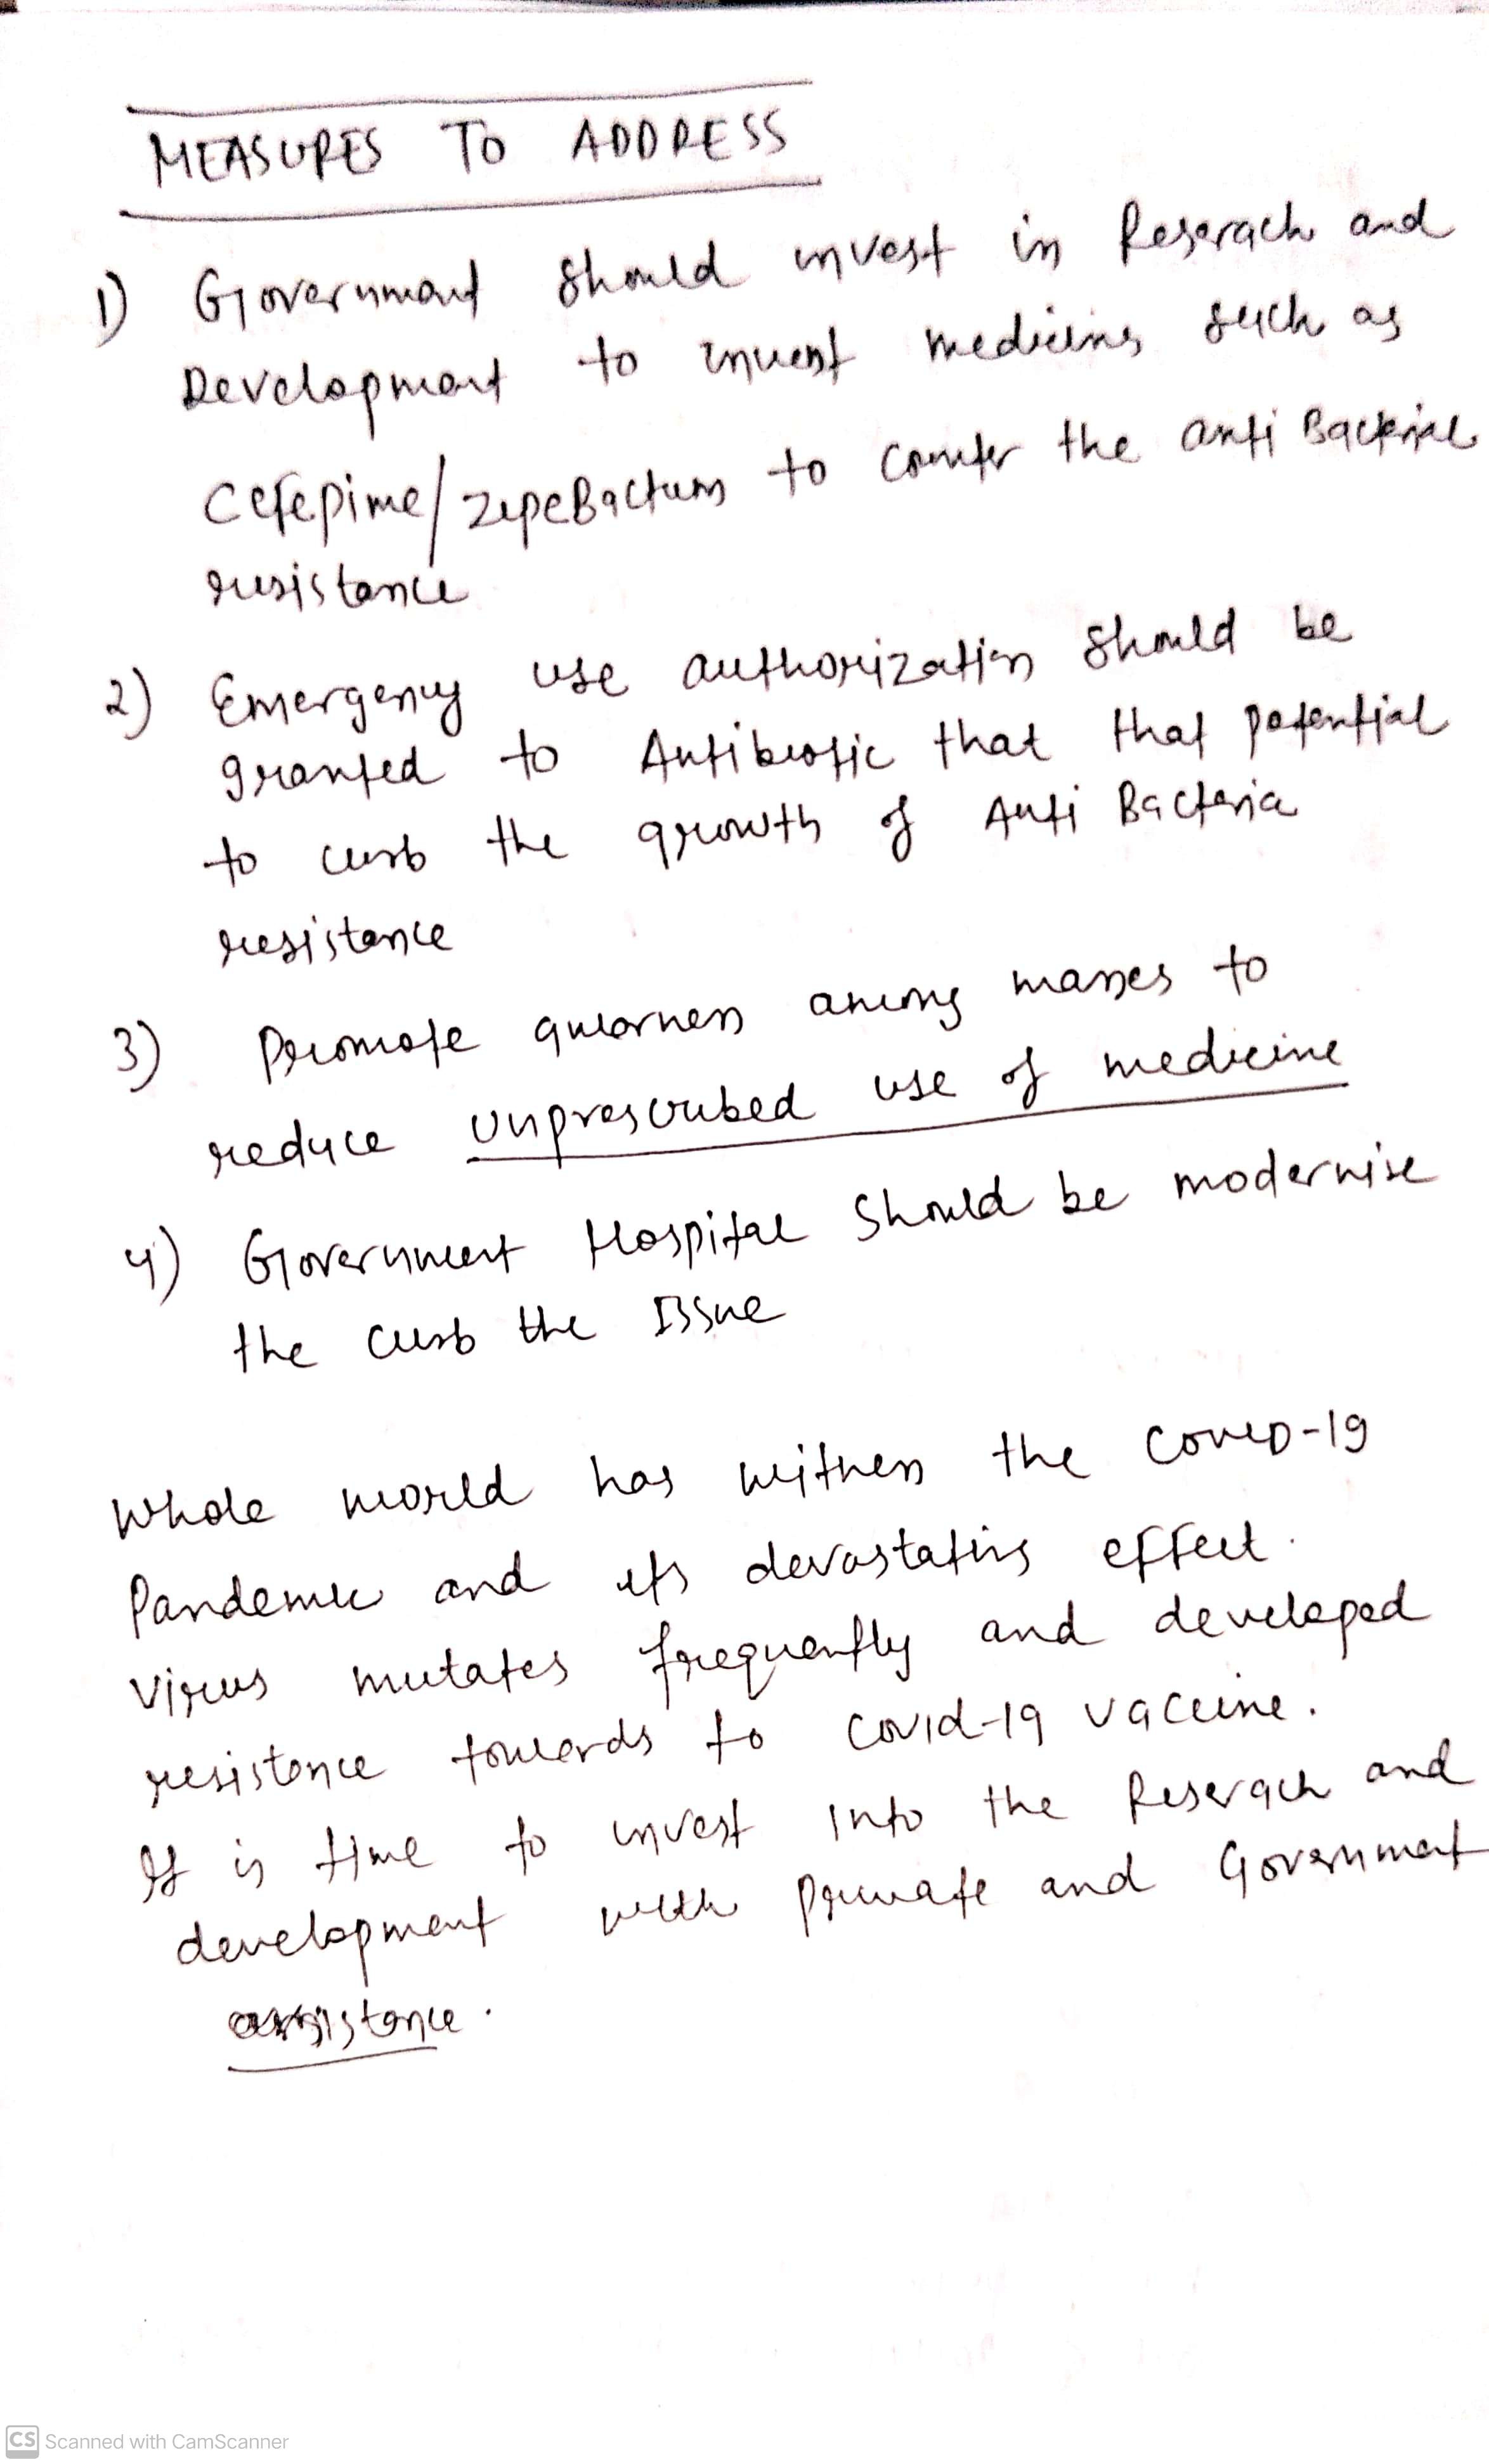 MEASURES TO ADDRESS
1) Government should invest in Reserach and
Development to invent medicins such as
Cefepime/zepeBactum to counter the anti Backrial
resistance
2) Emergency use authorization should be
granted to Antibiotic that that potential
to curb the growth of Anti Bacteria
resistance
3) Promote awarness among masses to
reduce unprescribed use of medicine
4) Government Hospital should be modernise
the curb the Issue
Whole world has witness the COVID-19
Pandemic and its devastating effect.
virus mutates frequently and developed
resistance towards to Covid-19 vaccine.
It is time to invest into the Reserach and
development with private and Government
assistance.
CS Scanned with CamScanner